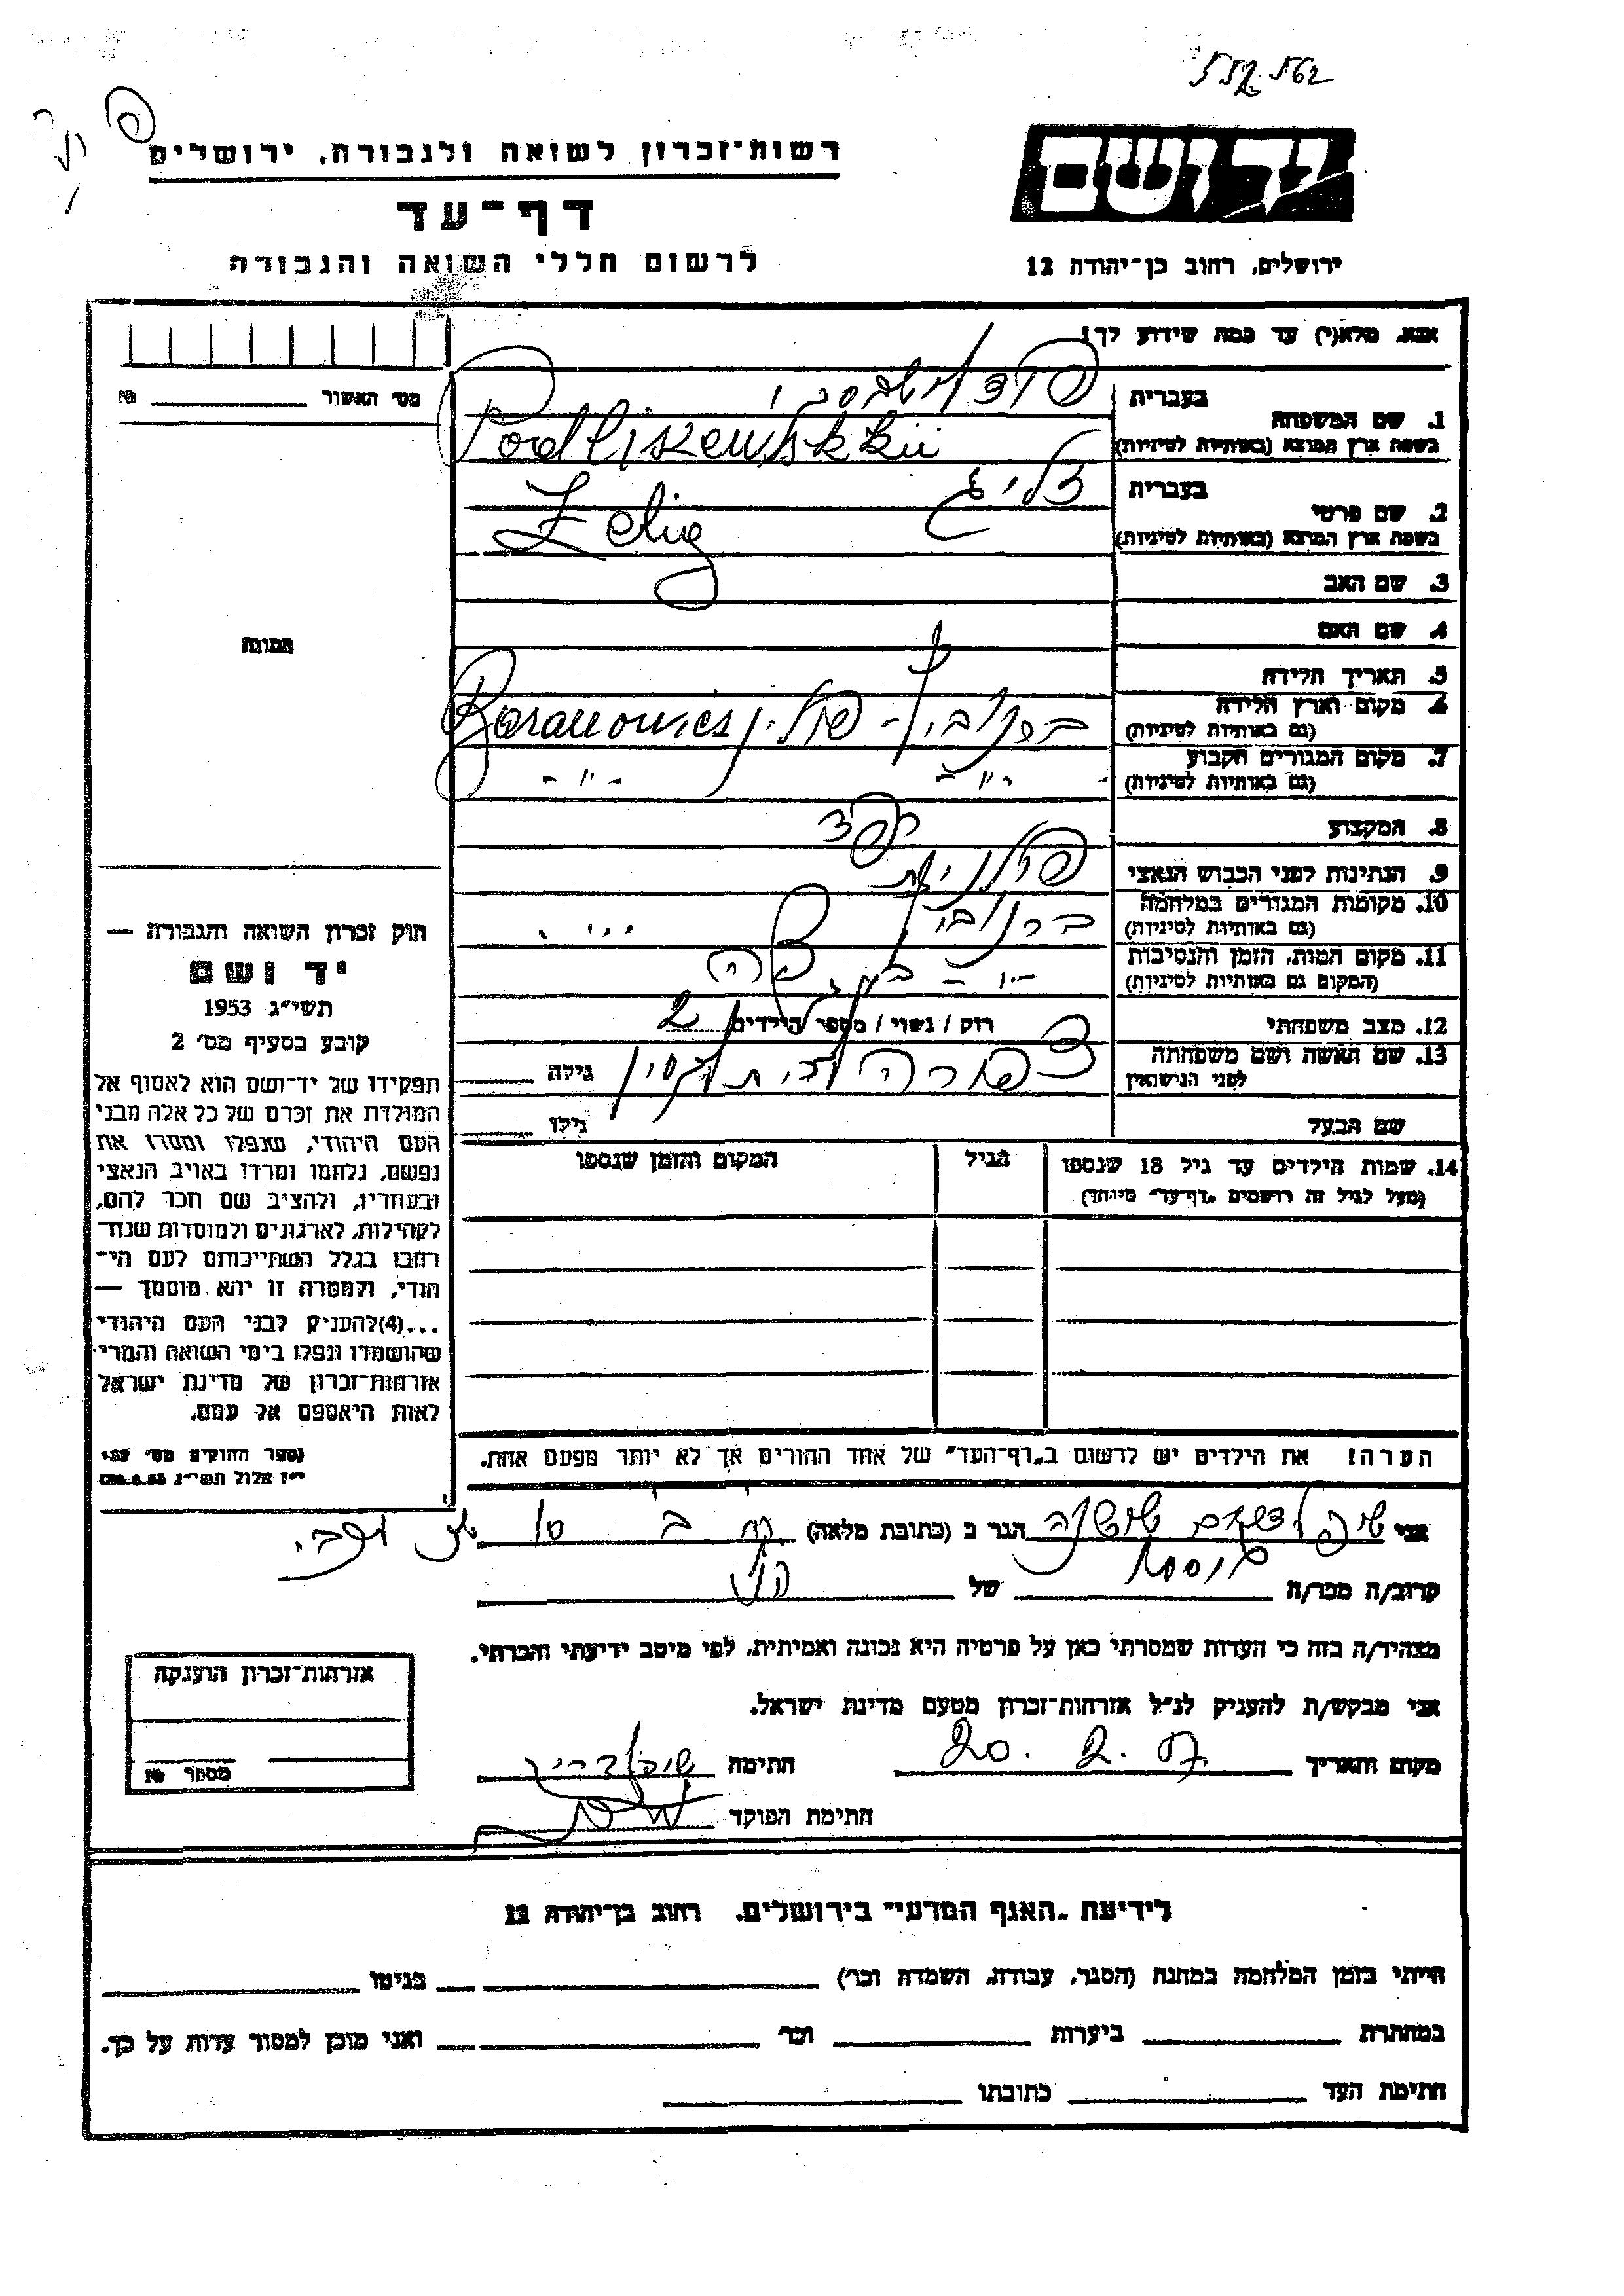 רשות־זכרון לשואה ולגבורה, ירושלים
דף־עד
לרשום חללי השואה והגבורה
יד ושם
ירושלים, רחוב בן־יהודה 12
אנא, מלא(י) עד כמה שידוע לך!
מס׳ האשור № 
1. שם המשפחה
בעברית
בשפת ארץ המוצא (באותיות לטיניות) Podliszewskkii
2. שם פרטי
בעברית זליג
בשפת ארץ המוצא (באותיות לטיניות) Zelig
3. שם האב
4. שם האם
5. תאריך הלידה
6. מקום וארץ הלידה
(גם באותיות לטיניות) ברנוביץ - פולין Baranowicz
7. מקום המגורים הקבוע
(גם באותיות לטיניות) - " - - " -
8. המקצוע
9. הנתינות לפני הכבוש הנאצי פולנית
10. מקומות המגורים במלחמה
(גם באותיות לטיניות) ברנוביץ
11. מקום המות, הזמן והנסיבות
(המקום גם באותיות לטיניות)
12. מצב משפחתי רווק / נשוי / מספר הילדים 2
13. שם האשה ושם משפחתה
לפני הנישואין צפורה לבית גילה
שם הבעל גילו
14. שמות הילדים עד גיל 18 שנספו
(מעל לגיל זה רושמים "דף־עד" מיוחד)
הגיל
המקום והזמן שנספו
תמונה
חוק זכרון השואה והגבורה —
יד ושם
תשי״ג 1953
קובע בסעיף מס׳ 2
תפקידו של יד־ושם הוא לאסוף אל
המולדת את זכרם של כל אלה מבני
העם היהודי, שנפלו ומסרו את
נפשם, נלחמו ומרדו באויב הנאצי
ובעוזריו, ולהציב שם וזכר להם,
לקהילות, לארגונים ולמוסדות שנח־
רבו בגלל השתייכותם לעם הי־
הודי, ולמטרה זו יהא מוסמך —
...(4)להעניק לבני העם היהודי
שהושמדו ונפלו בימי השואה והמרי
אזרחות־זכרון של מדינת ישראל
לאות היאספם אל עמם.
(ספר החוקים מס׳ 132,
י״ז אלול תשי״ג 28.8.53)
הערה! את הילדים יש לרשום ב„דף־העד״ של אחד ההורים אך לא יותר מפעם אחת.
אני שושנה הגר ב (כתובת מלאה)
קרוב/ה מכר/ה של
מצהיר/ה בזה כי העדות שמסרתי כאן על פרטיה היא נכונה ואמיתית, לפי מיטב ידיעתי והכרתי.
אני מבקש/ת להעניק לנ״ל אזרחות־זכרון מטעם מדינת ישראל.
מקום ותאריך 20. 2. 57 חתימה
חתימת הפוקד
אזרחות־זכרון הוענקה
מספר №
לידיעת „האגף המדעי״ בירושלים. רחוב בן־יהודה 12
הייתי בזמן המלחמה במחנה (הסגר, עבודה, השמדה וכו׳) בגיטו
במחתרת ביערות וכו׳ ואני מוכן למסור עדות על כך.
חתימת העד כתובתו